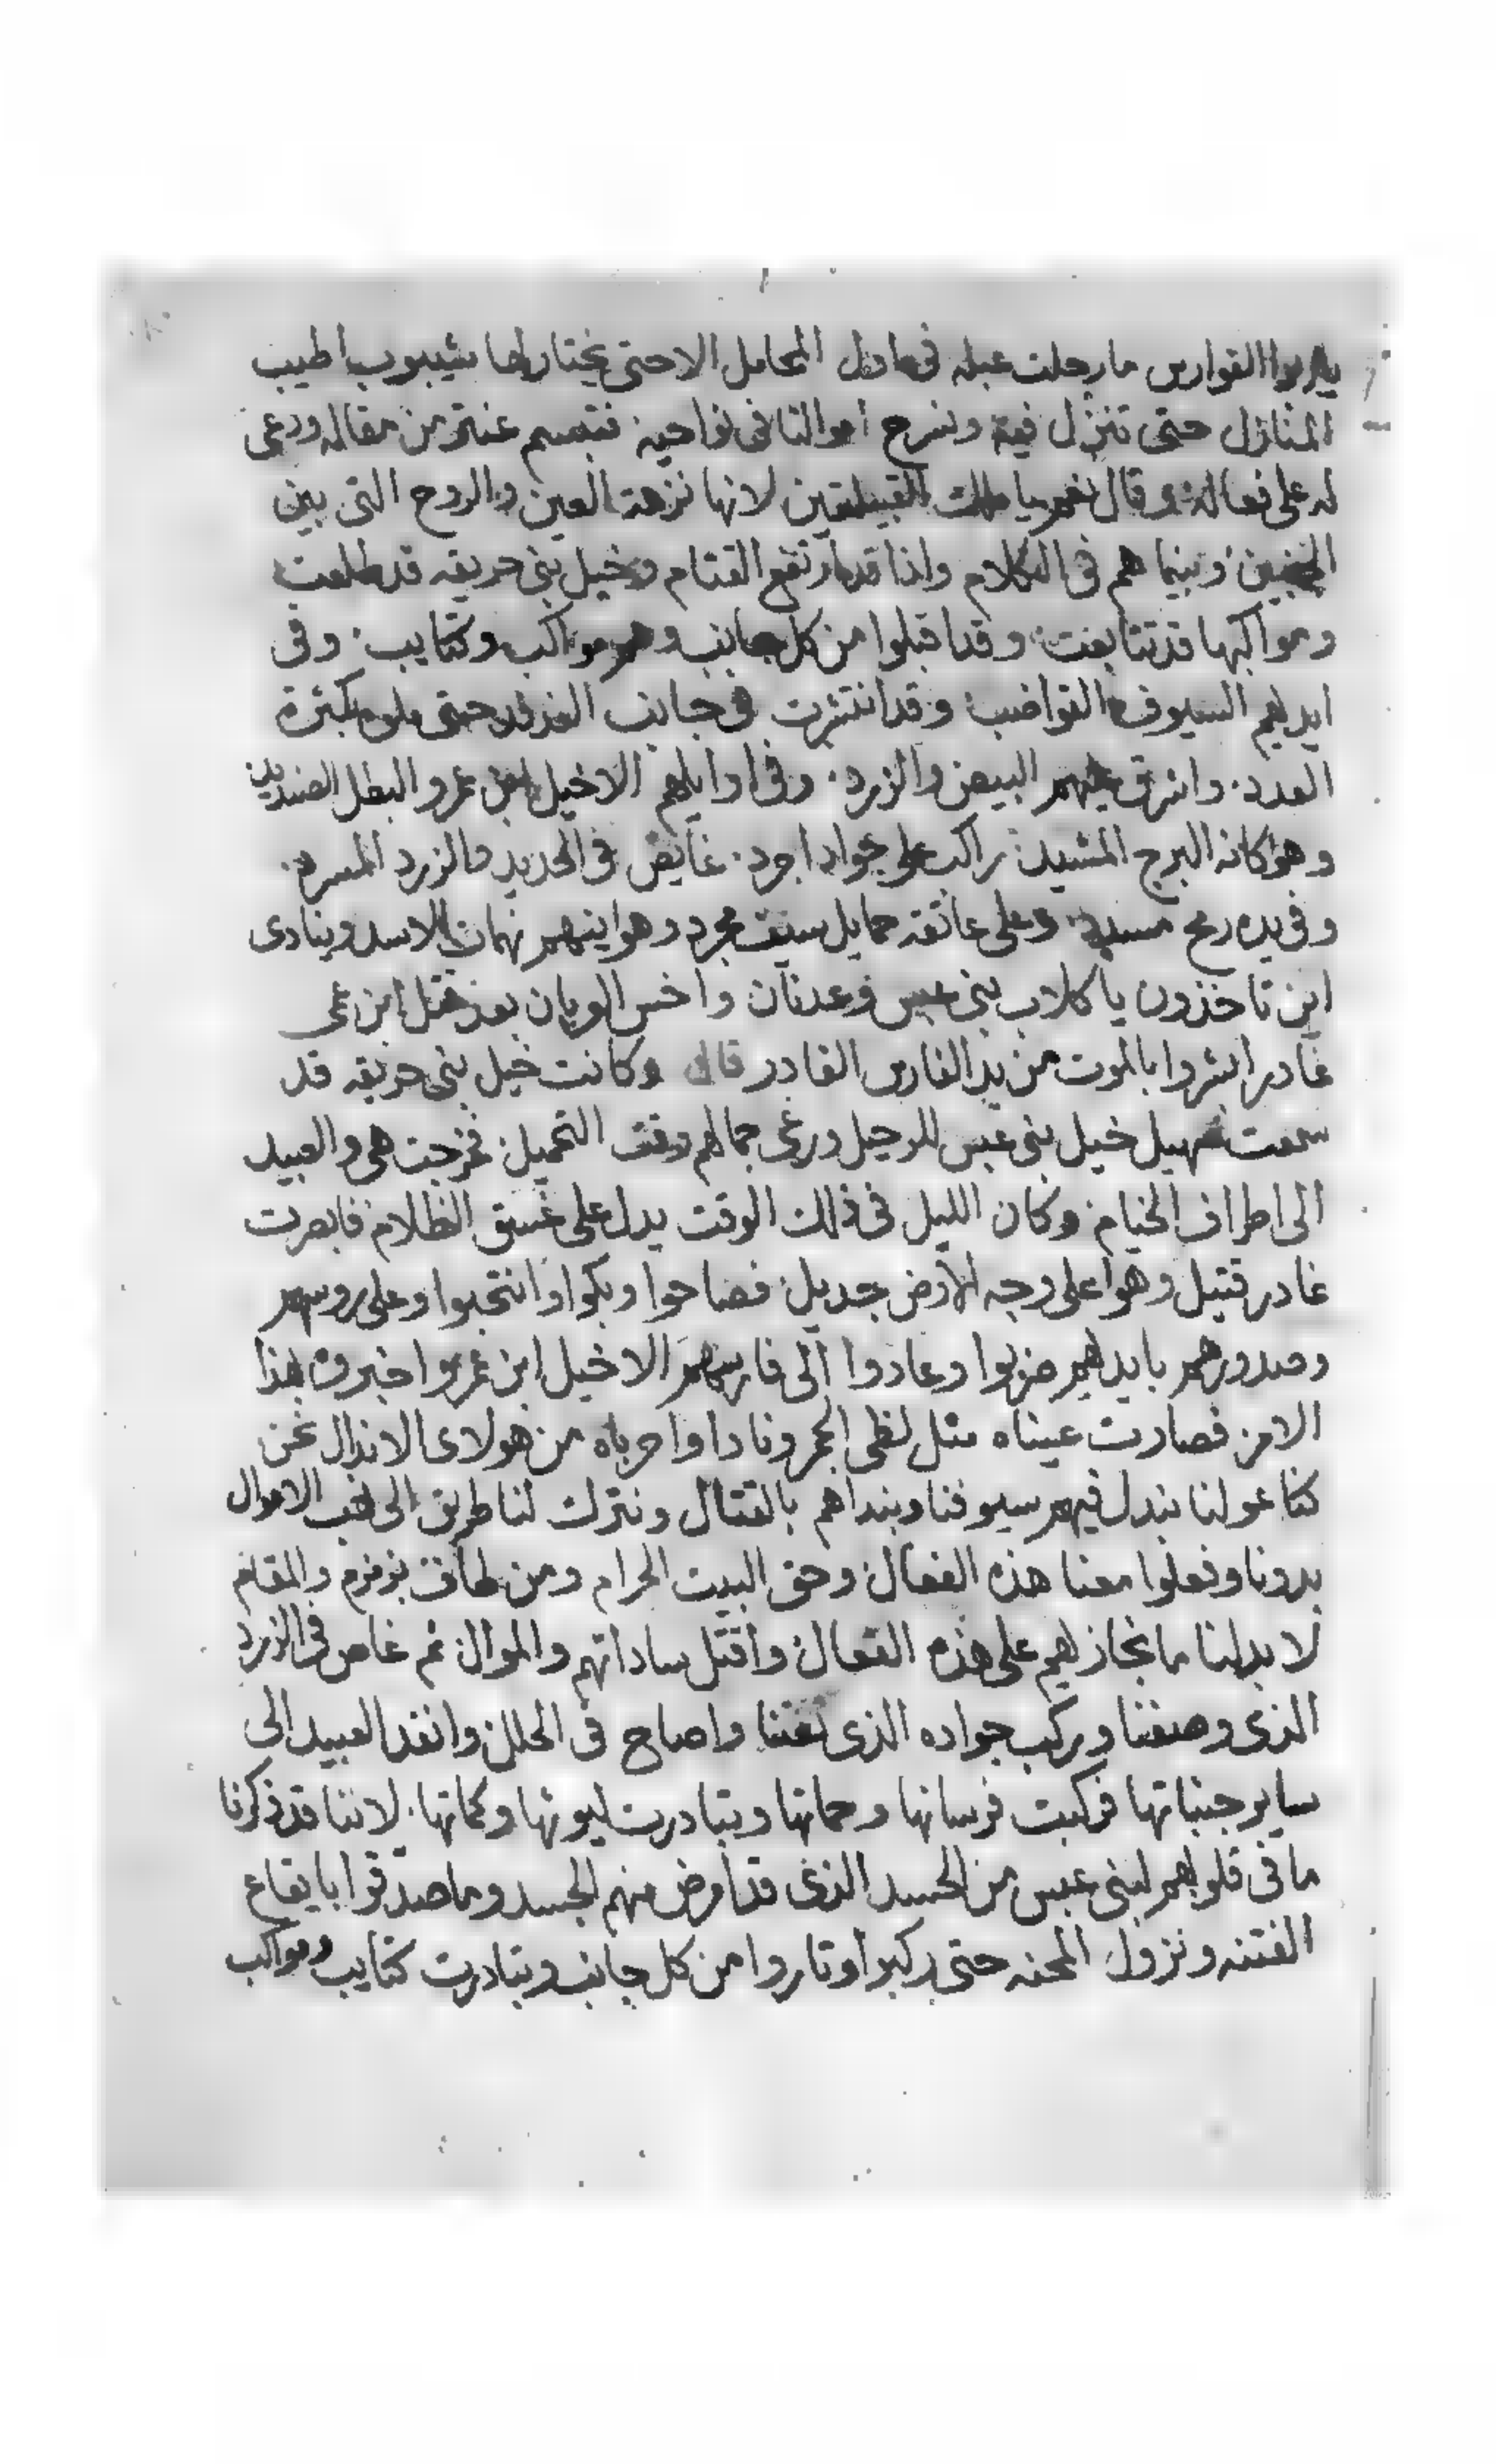 يابوا الفوارس ما رحلت عبله في هادل المحامل الا حتى يختار لها شيبوب اطيب
المنازل حتى تنزل فيه ونسرح اموالنا في نواحيه فتبسم عنتر من مقاله ودعى
له على فعاله وقال نعم يا ملك القبيلتين لانها نزهة العين والروح التي بين
الجنبين وبينما هم في الكلام واذا قد ارتفع القتام وخيل بني حريقه قد طلعت
ومواكبها قد تتابعت وقد اقبلوا من كل جانب وهم مواكب وكتايب وفي
ايديهم السيوف القواضب وقد انتشرت في جانب الفدفد حتى ملوه بكثرة
العدد واشرق عليهم البيض والزرد وفي اوايلهم الاخيل ابن عمرو البطل الصنديد
وهو كانه البرج المشيد راكب على جواد اجرد غايص في الحديد والزرد المسرد
وفي يده رمح مسدد وعلى عاتقه حمايل سيف مجرد وهوا ينهم نهمات الاسد وينادى
اين تاخذون يا كلاب بني عبس وعدنان واخس العربان بعد قتل ابن عمى
غادر ابشروا بالموت من يد الفارس القادر قال وكانت خيل بني حريقه قد
سمعت صهيل خيل بني عبس للرحيل ورغى جمالهم وقت التحميل فخرجت هي والعبيد
الى اطراف الخيام وكان الليل في ذلك الوقت يدل على غسق الظلام فابصرت
غادر قتيل وهوا على وجه الارض جديل فصاحوا وبكوا وانتحبوا وعلى روسهم
وصدورهم بايديهم ضربوا وعادوا الى فارسهم الاخيل ابن عمرو واخبروه بهذا
الامر فصارت عيناه مثل لظى الجمر ونادا واحرباه من هولاى الانذال نحن
كنا عولنا نبدل فيهم سيوفنا ونبداهم بالقتال ونترك لنا طريق الى نهب الاموال
بدونا وفعلوا معنا هذه الفعال وحق البيت الحرام ومن طاف بزمزم والمقام
لا بد لنا ما نجازيهم على هذه الفعال واقتل ساداتهم والموال ثم غاص في الزرد
الذي وصفنا وركب جواده الذي نعتنا واصاح في الحلل وانفد العبيد الى
ساير جنباتها فركبت فرسانها وحماتها وتبادرت ليوثها وكماتها لاننا قد ذكرنا
ما في قلوبهم لبني عبس من الحسد الذي قد امرض منهم الجسد وما صدقوا بايقاع
الفتنه ونزول المحنه حتى ركبوا وتاروا من كل جانب وتبادرت كتايب ومواكب